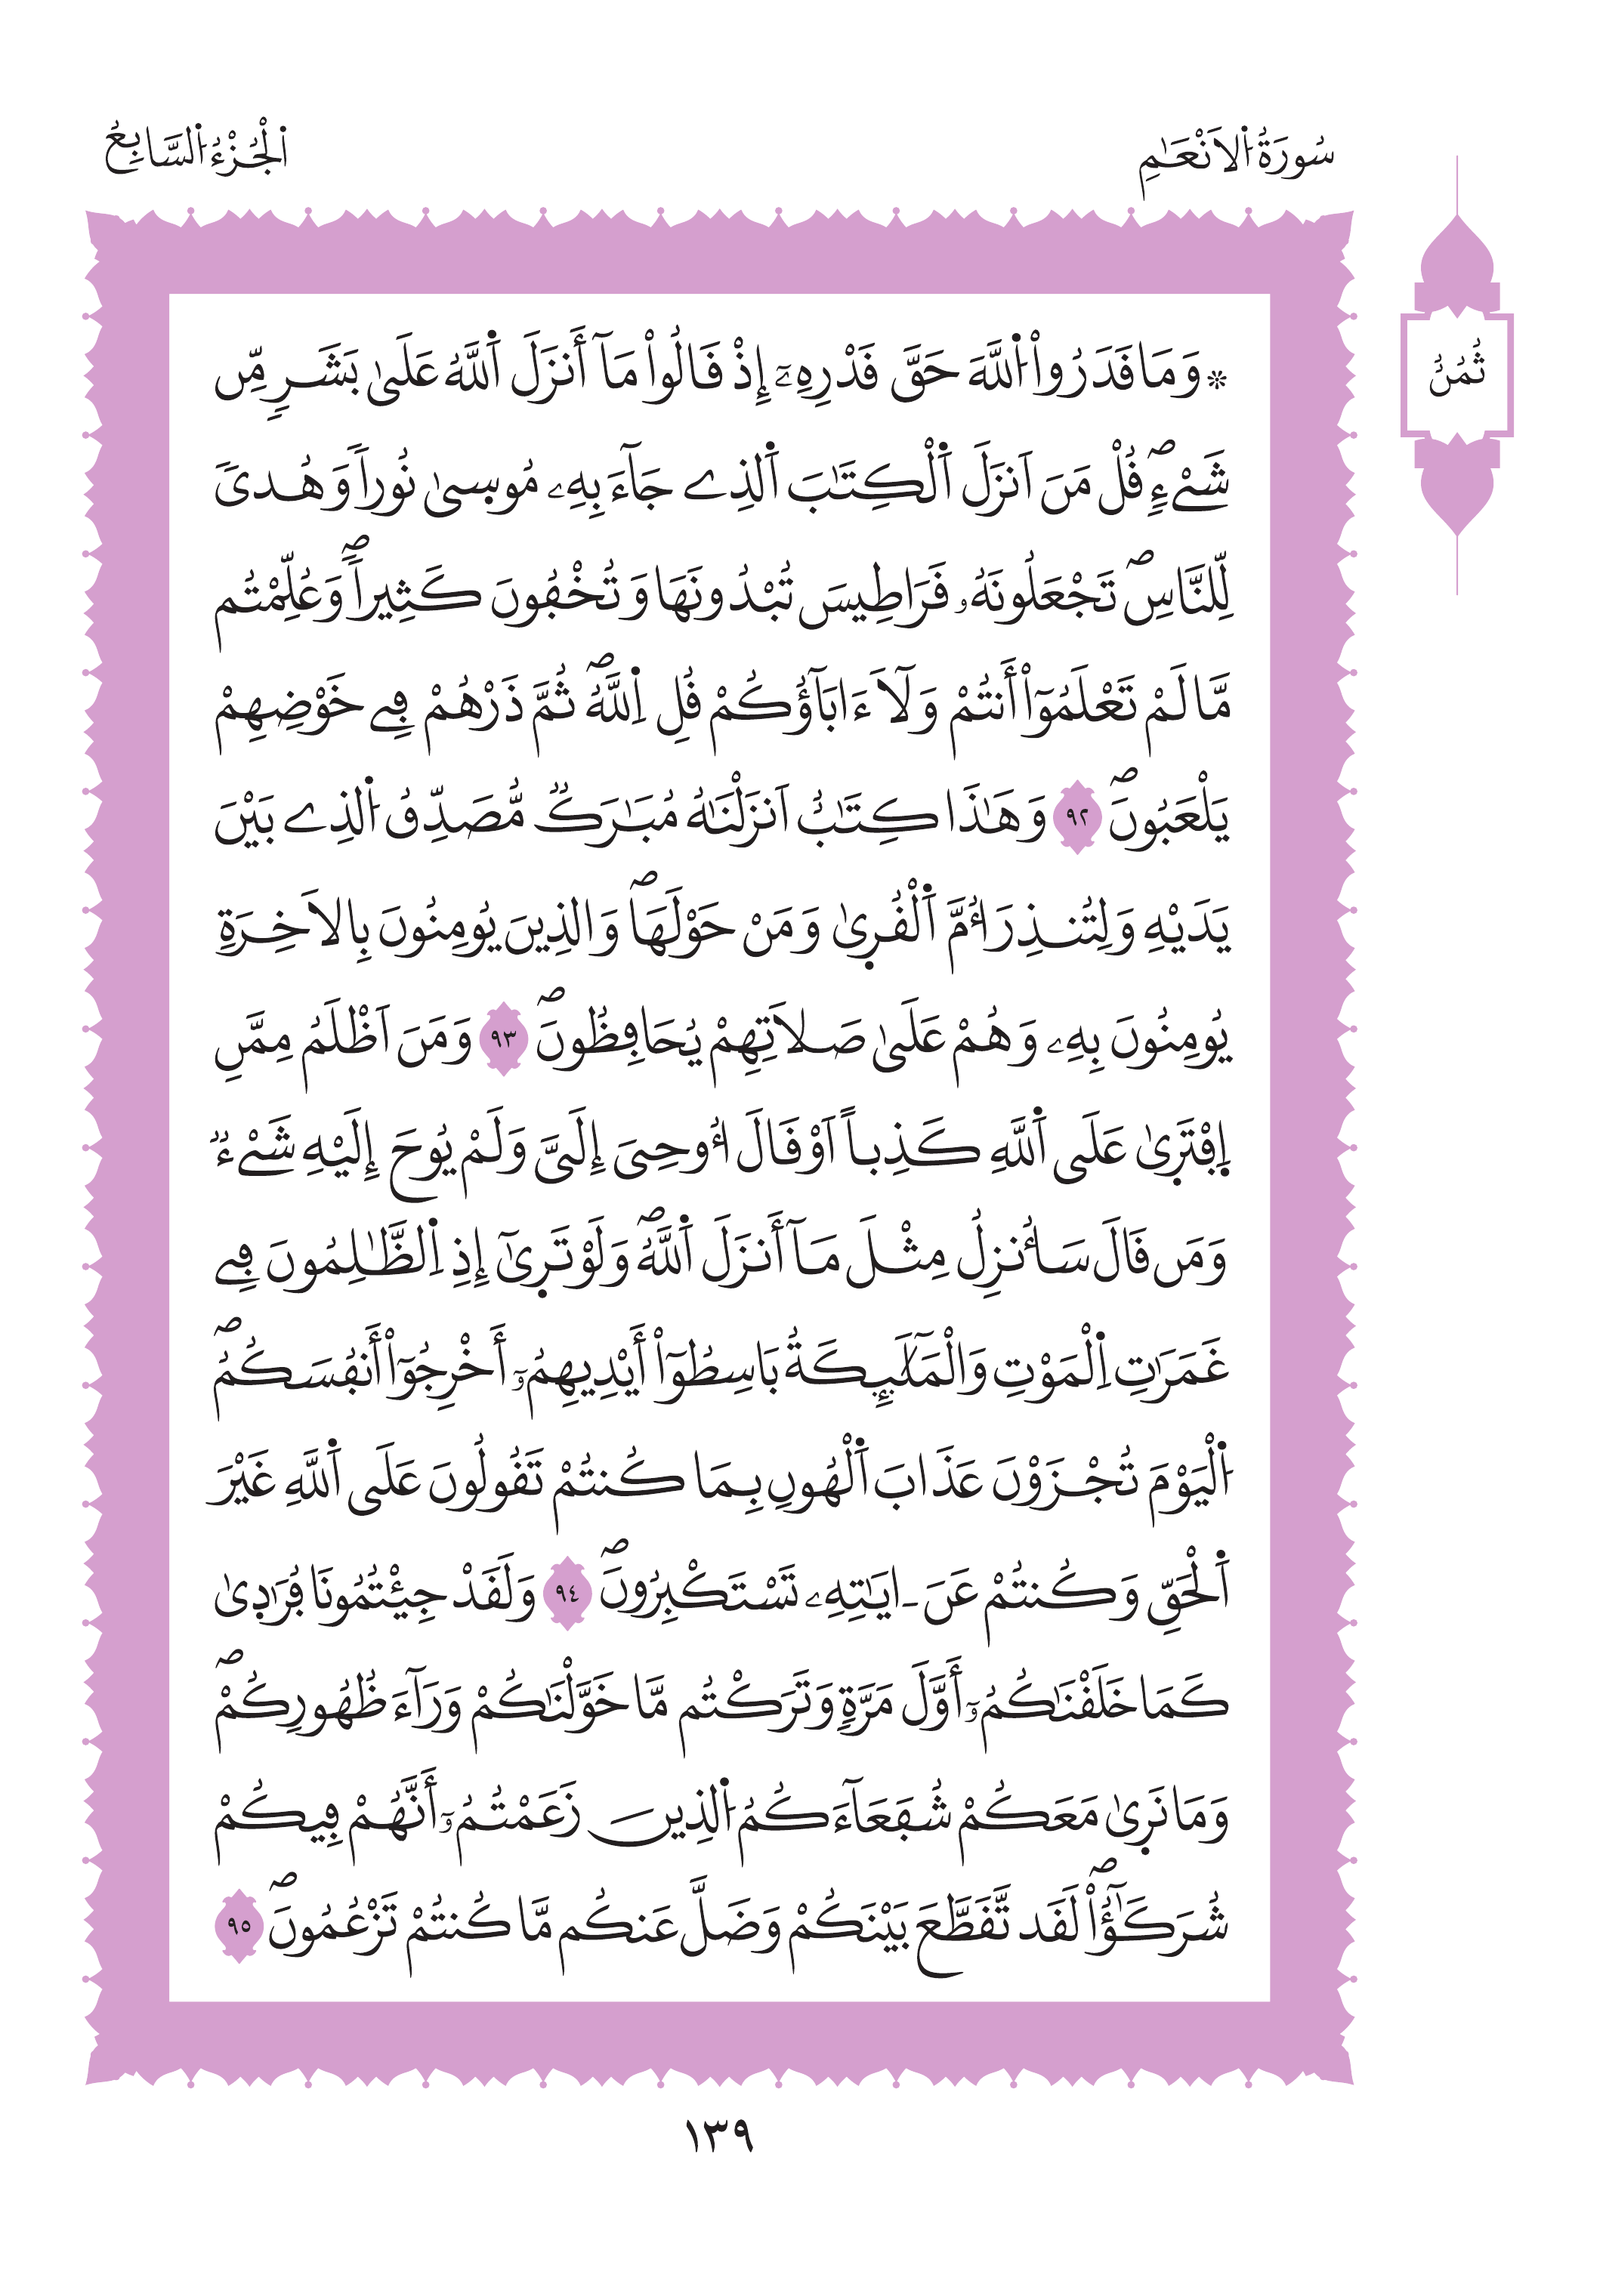 سُورَةُ الْاَنْعَٰمِ
اَلْجُزْءُ السَّابِعُ
ثُمُنٌ
۞ وَمَا قَدَرُواْ اُللَّهَ حَقَّ قَدْرِهِۦٓ إِذْ قَالُواْ مَآ أَنزَلَ اَللَّهُ عَلَىٰ بَشَرٖ مِّن
شَےْءٖۖ قُلْ مَنَ اَنزَلَ اَلْكِتَٰبَ اَلذِے جَآءَ بِهِۦ مُوسِىٰ نُوراٗ وَهُدىٗ
لِّلنَّاسِۖ تَجْعَلُونَهُۥ قَرَاطِيسَ تُبْدُونَهَا وَتُخْفُونَ كَثِيراٗۖ وَعُلِّمْتُم
مَّا لَمْ تَعْلَمُوٓاْ أَنتُمْ وَلَآ ءَابَآؤُكُمْ قُلِ اِللَّهُۖ ثُمَّ ذَرْهُمْ فِے خَوْضِهِمْ
يَلْعَبُونَۖ ٩٢ وَهَٰذَا كِتَٰبٌ اَنزَلْنَٰهُ مُبَٰرَكٞ مُّصَدِّقُ اُلذِے بَيْنَ
يَدَيْهِ وَلِتُنذِرَ أُمَّ اَلْقُرِىٰ وَمَنْ حَوْلَهَاۖ وَالذِينَ يُومِنُونَ بِالاَخِرَةِ
يُومِنُونَ بِهِۦ وَهُمْ عَلَىٰ صَلَاتِهِمْ يُحَافِظُونَۖ ٩٣ وَمَنَ اَظْلَمُ مِمَّنِ
اِفْتَرِىٰ عَلَى اَللَّهِ كَذِباً اَوْ قَالَ أُوحِىَ إِلَىَّ وَلَمْ يُوحَ إِلَيْهِ شَےْءٞ
وَمَن قَالَ سَأُنزِلُ مِثْلَ مَآ أَنزَلَ اَللَّهُۖ وَلَوْ تَرِىٰٓ إِذِ اِلظَّٰلِمُونَ فِے
غَمَرَٰتِ اِلْمَوْتِ وَالْمَلَٰٓئِكَةُ بَاسِطُوٓاْ أَيْدِيهِمُۥٓ أَخْرِجُوٓاْ أَنفُسَكُمُۖ
اُلْيَوْمَ تُجْزَوْنَ عَذَابَ اَلْهُونِ بِمَا كُنتُمْ تَقُولُونَ عَلَى اَللَّهِ غَيْرَ
اَلْحَقِّ وَكُنتُمْ عَنَ ـ ايَٰتِهِۦ تَسْتَكْبِرُونَۖ ٩٤ وَلَقَدْ جِئْتُمُونَا فُرَٰدِىٰ
كَمَا خَلَقْنَٰكُمُۥٓ أَوَّلَ مَرَّةٖ وَتَرَكْتُم مَّا خَوَّلْنَٰكُمْ وَرَآءَ ظُهُورِكُمْۖ
وَمَا نَرِىٰ مَعَكُمْ شُفَعَآءَكُمُ اُلذِينَ زَعَمْتُمُۥٓ أَنَّهُمْ فِيكُمْ
شُرَكَٰٓؤُاْۖ لَقَد تَّقَطَّعَ بَيْنَكُمْ وَضَلَّ عَنكُم مَّا كُنتُمْ تَزْعُمُونَۖ ٩٥
١٣٩